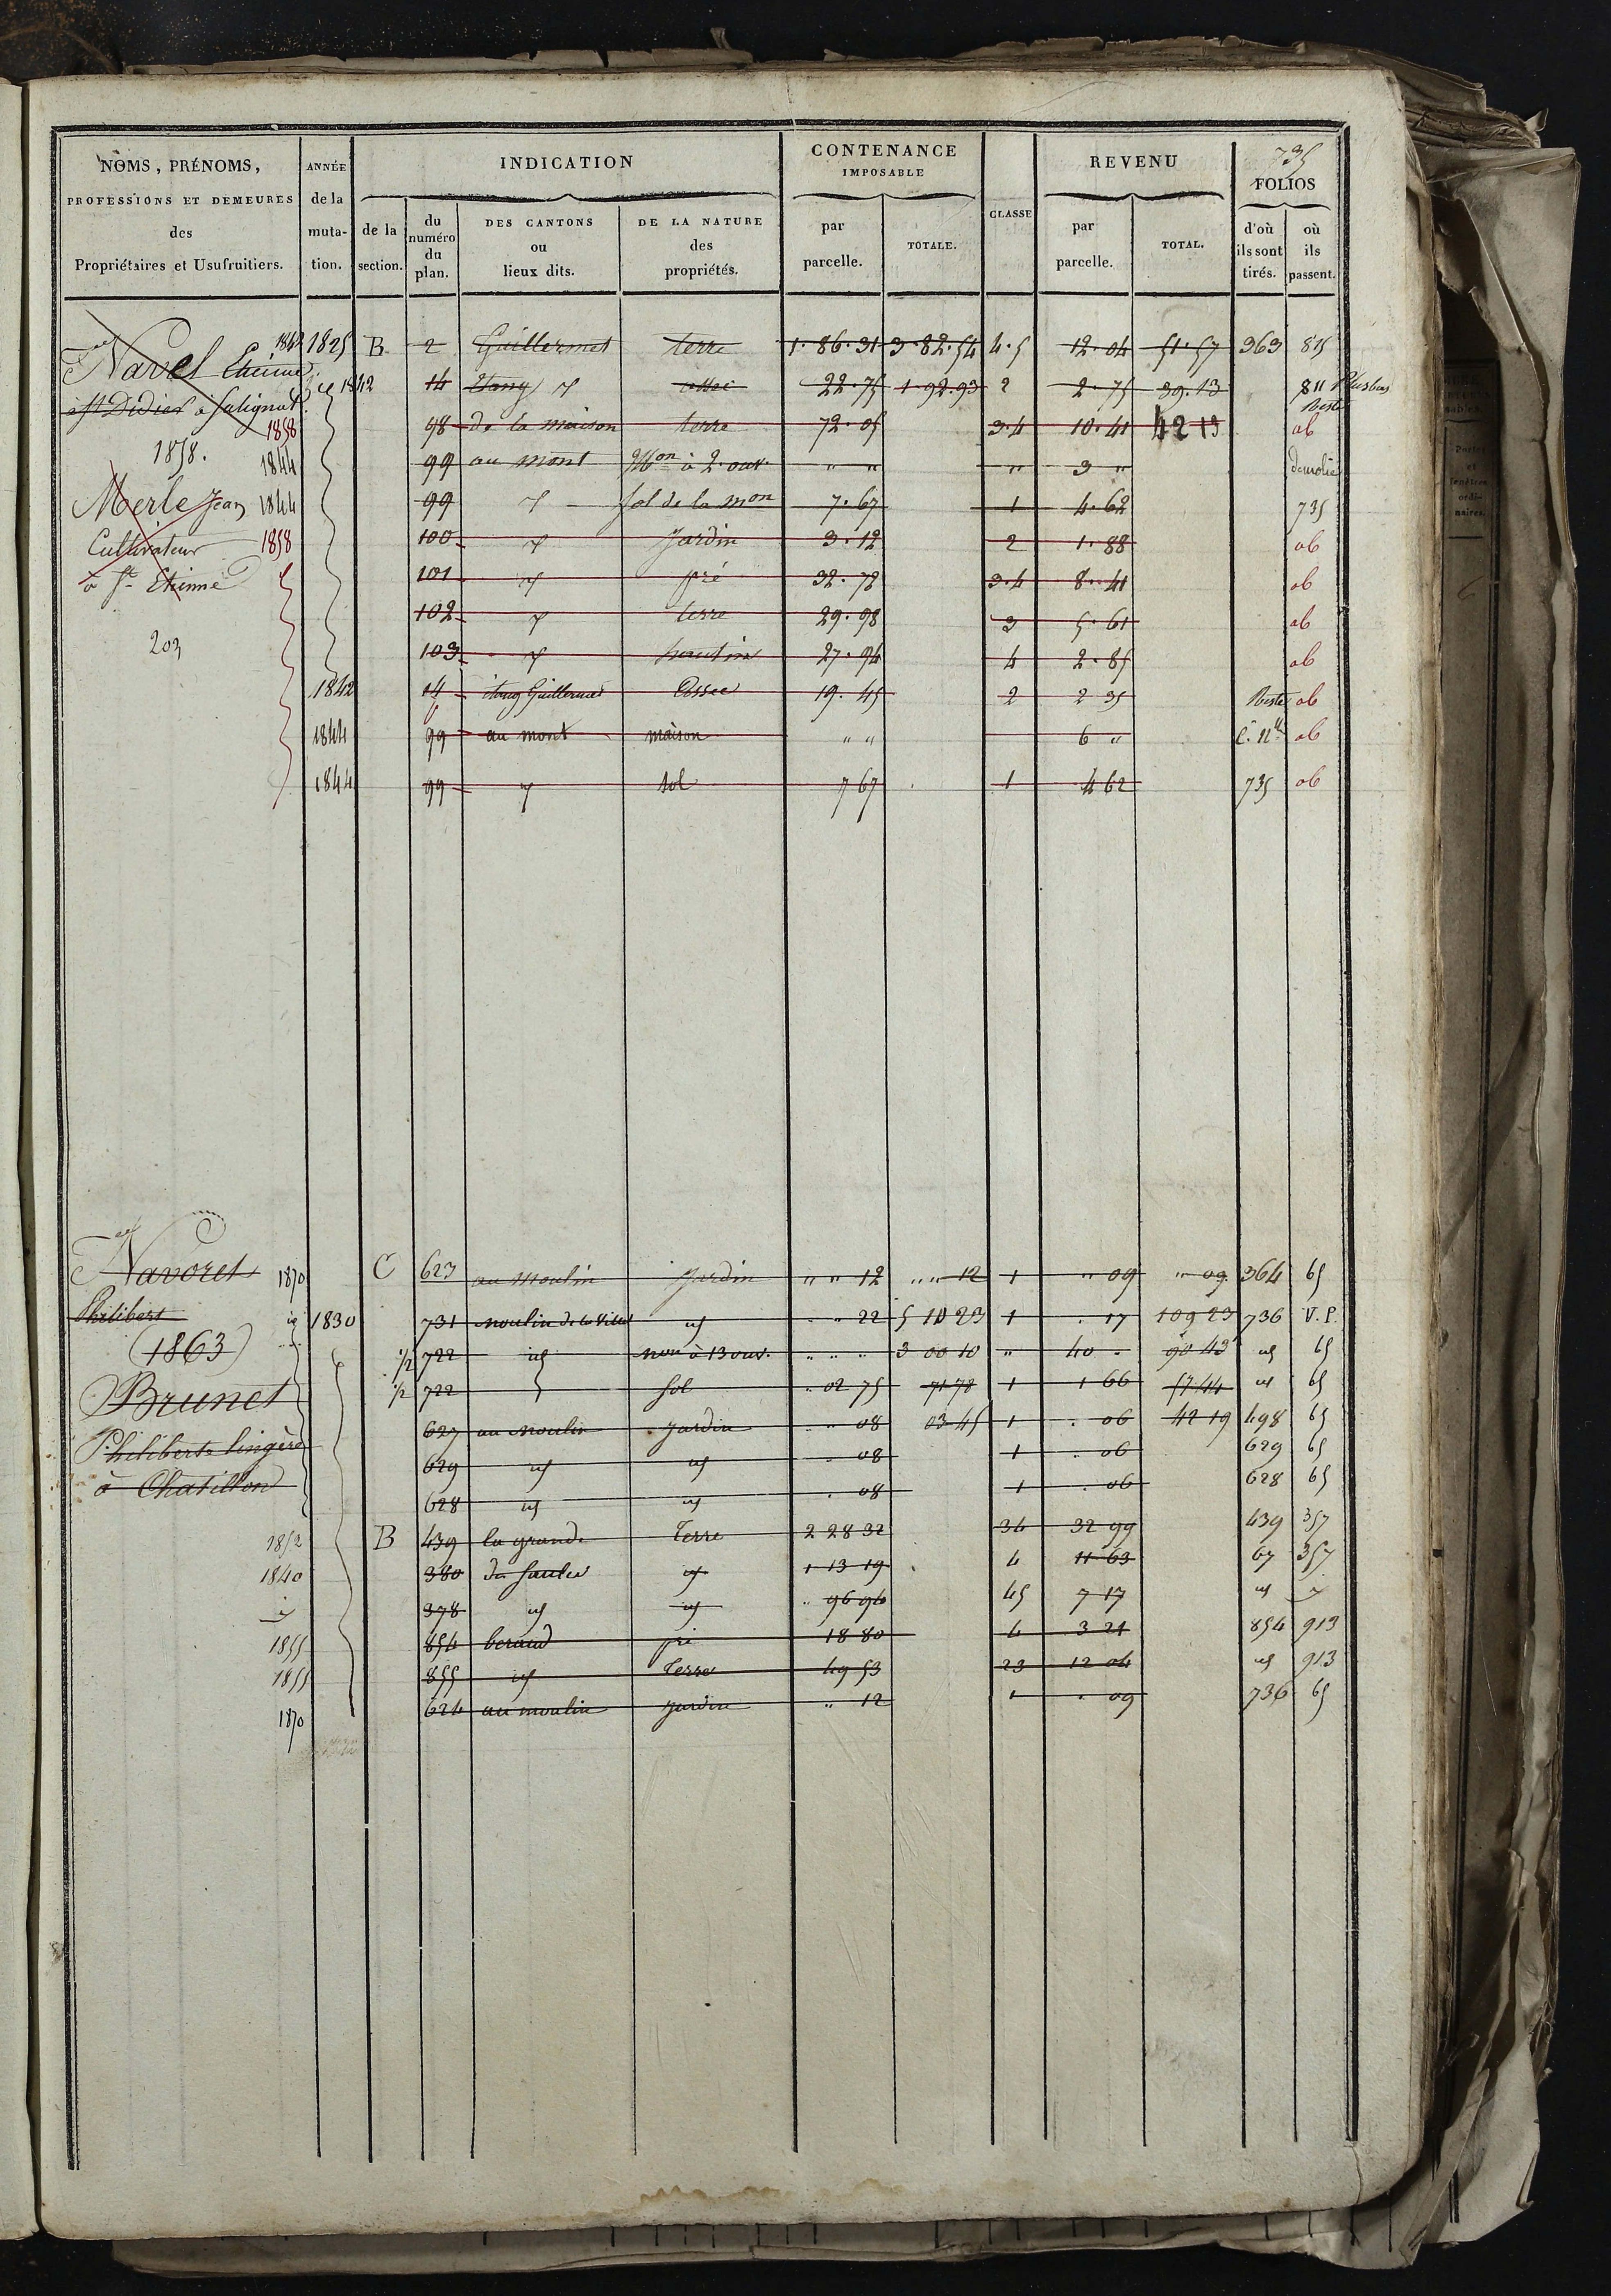 735
NOMS, PRÉNOMS, PROFESSIONS ET DEMEURES des Propriétaires et Usufruitiers.
ANNÉE de la muta-tion.
INDICATION
de la section.
du numéro du plan.
DES CANTONS ou lieux dits.
DE LA NATURE des propriétés.
CONTENANCE IMPOSABLE
par parcelle.
TOTALE.
CLASSE
REVENU
par parcelle.
TOTAL.
FOLIOS
d'où ils sont tirés.
où ils passent.
Navel Etienne 1842 1825 B 2 Guillermet terre 1.86.31 3.82.54 4.5 12.04 51.57 363 815
à St Didier à Salignat 1842 14 Etang assec 22.75 1.92.93 2 2.75 39.13 811 Plus bas Reste
1858 98 de la maison terre 72.05 3.4 10.41 42 13 ab
1858. 1844 99 au mont Mon à 2 ouv. " " " 3 " démolie
Merle Jean 1844 99 Sol de la mon 7.67 1 4.62 735
Cultivateur 1858 100 Jardin 3.12 2 1.88 ab
à St Etienne 101 pré 32.72 3.4 8.41 ab
102 terre 29.98 3 5.61 ab
203 103 hautin 27.94 4 2.85 ab
1842 14 étang Guillermet Assec 19.45 2 2 35 Reste ab
1844 99 au mont maison " " 6 " C. Nlle ab
1844 99 sol 7 67 1 4 62 735 ab
Navoret 1870 C 623 au Moulin Jardin " " 12 " " 12 1 " 09 " 09 364 65
Philibert 1830 731 moulin de la Ville id " " 22 5 10 23 1 . 17 109 23 736 V.P.
(1863) 1/2 722 id mon à 13 ouv. " " " 3 00 10 " 40 - 90 43 id 65
Brunet 1/2 722 Sol . 02 75 71 78 1 1 66 57 44 id 65
627 au Moulin Jardin " 08 03 45 1 . 06 42 19 498 65
Philiberte lingère 629 id id . 08 1 . 06 629 65
à Chatillon 628 id id . 08 1 . 06 628 65
1852 B 439 la grande Terre 2 28 32 34 32 99 439 357
1840 380 du Saulce id 1 13 19 4 11 63 67 357
378 id id " 96 94 45 7 17 id
1855 854 beraud pré 18 80 4 3 21 854 913
1855 855 id Terre 49 53 23 12 04 id 913
1870 624 au moulin Jardin " 12 1 . 09 736 65